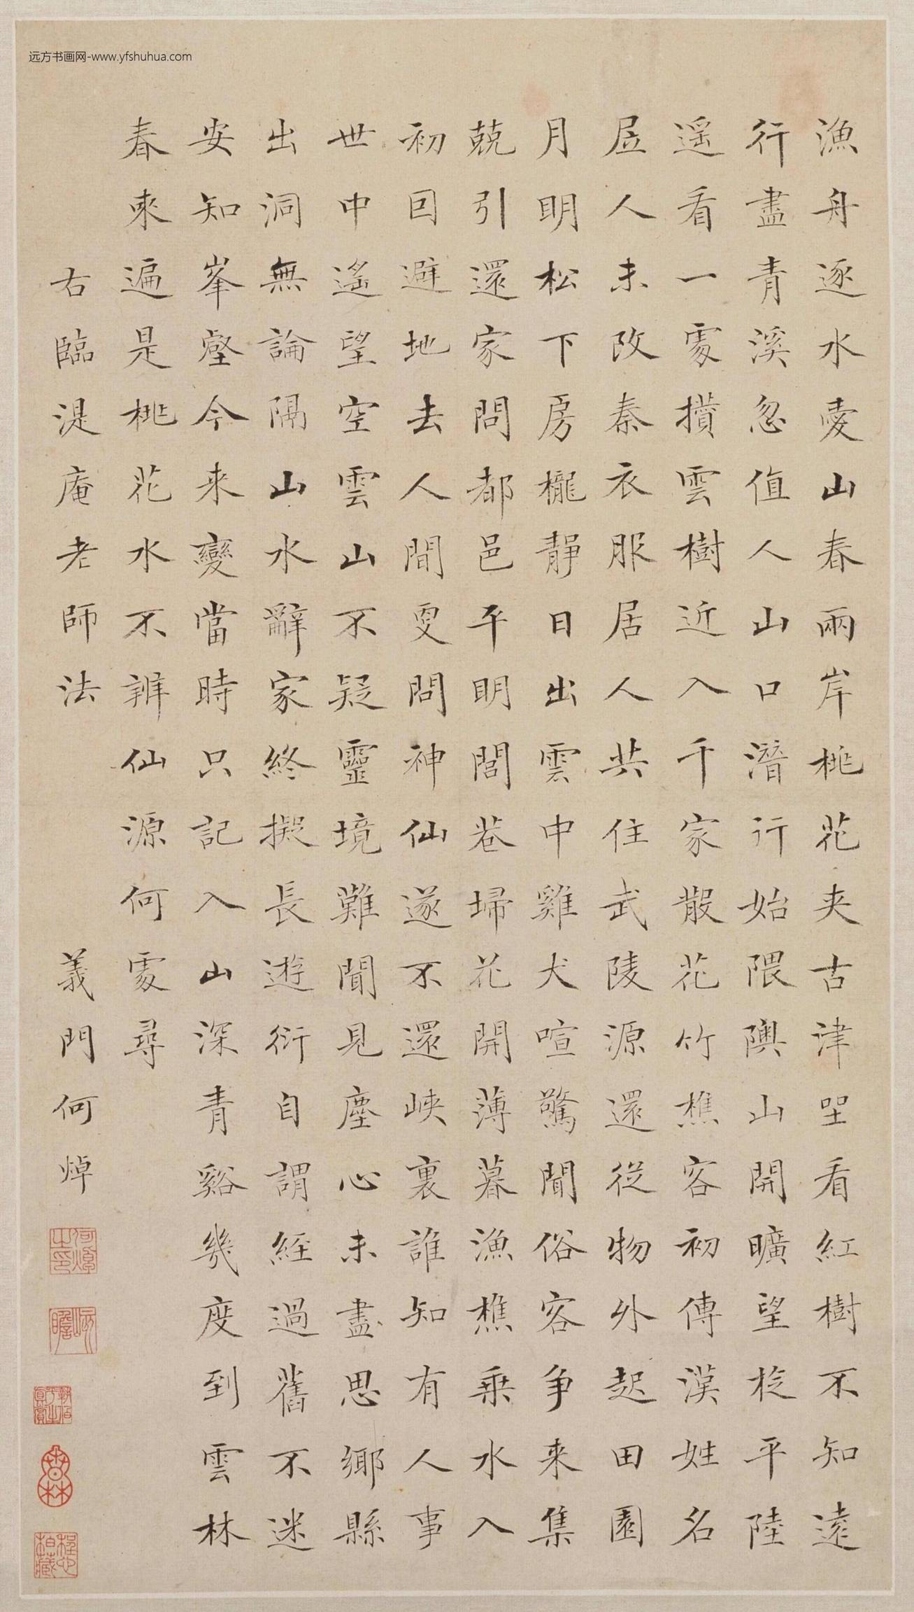 远方书画网-www.yfshuhua.com
漁舟逐水愛山春兩岸桃花夾古津坐看紅樹不知遠
行盡青溪忽值人山口潛行始隈隩山開曠望旋平陸
遥看一處攢雲樹近入千家散花竹樵客初傳漢姓名
居人未改秦衣服居人共住武陵源還從物外起田園
月明松下房櫳靜日出雲中雞犬喧驚聞俗客争来集
競引還家問都邑平明閭巷埽花開薄暮漁樵乘水入
初因避地去人間更問神仙遂不還峽裏誰知有人事
世中遙望空雲山不疑靈境難聞見塵心未盡思鄉縣
出洞無論隔山水辭家終擬長遊衍自謂經過舊不迷
安知峯壑今来變當時只記入山深青谿幾度到雲林
春來遍是桃花水不辨仙源何處尋
右臨湜庵老師法
義門何焯
何焯之印
屺瞻
程心柏藏